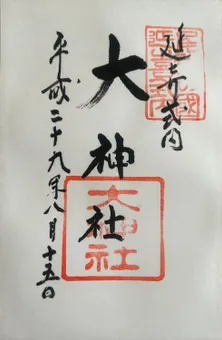 延喜式内
大神社
大神社
平成二十九年八月十五日